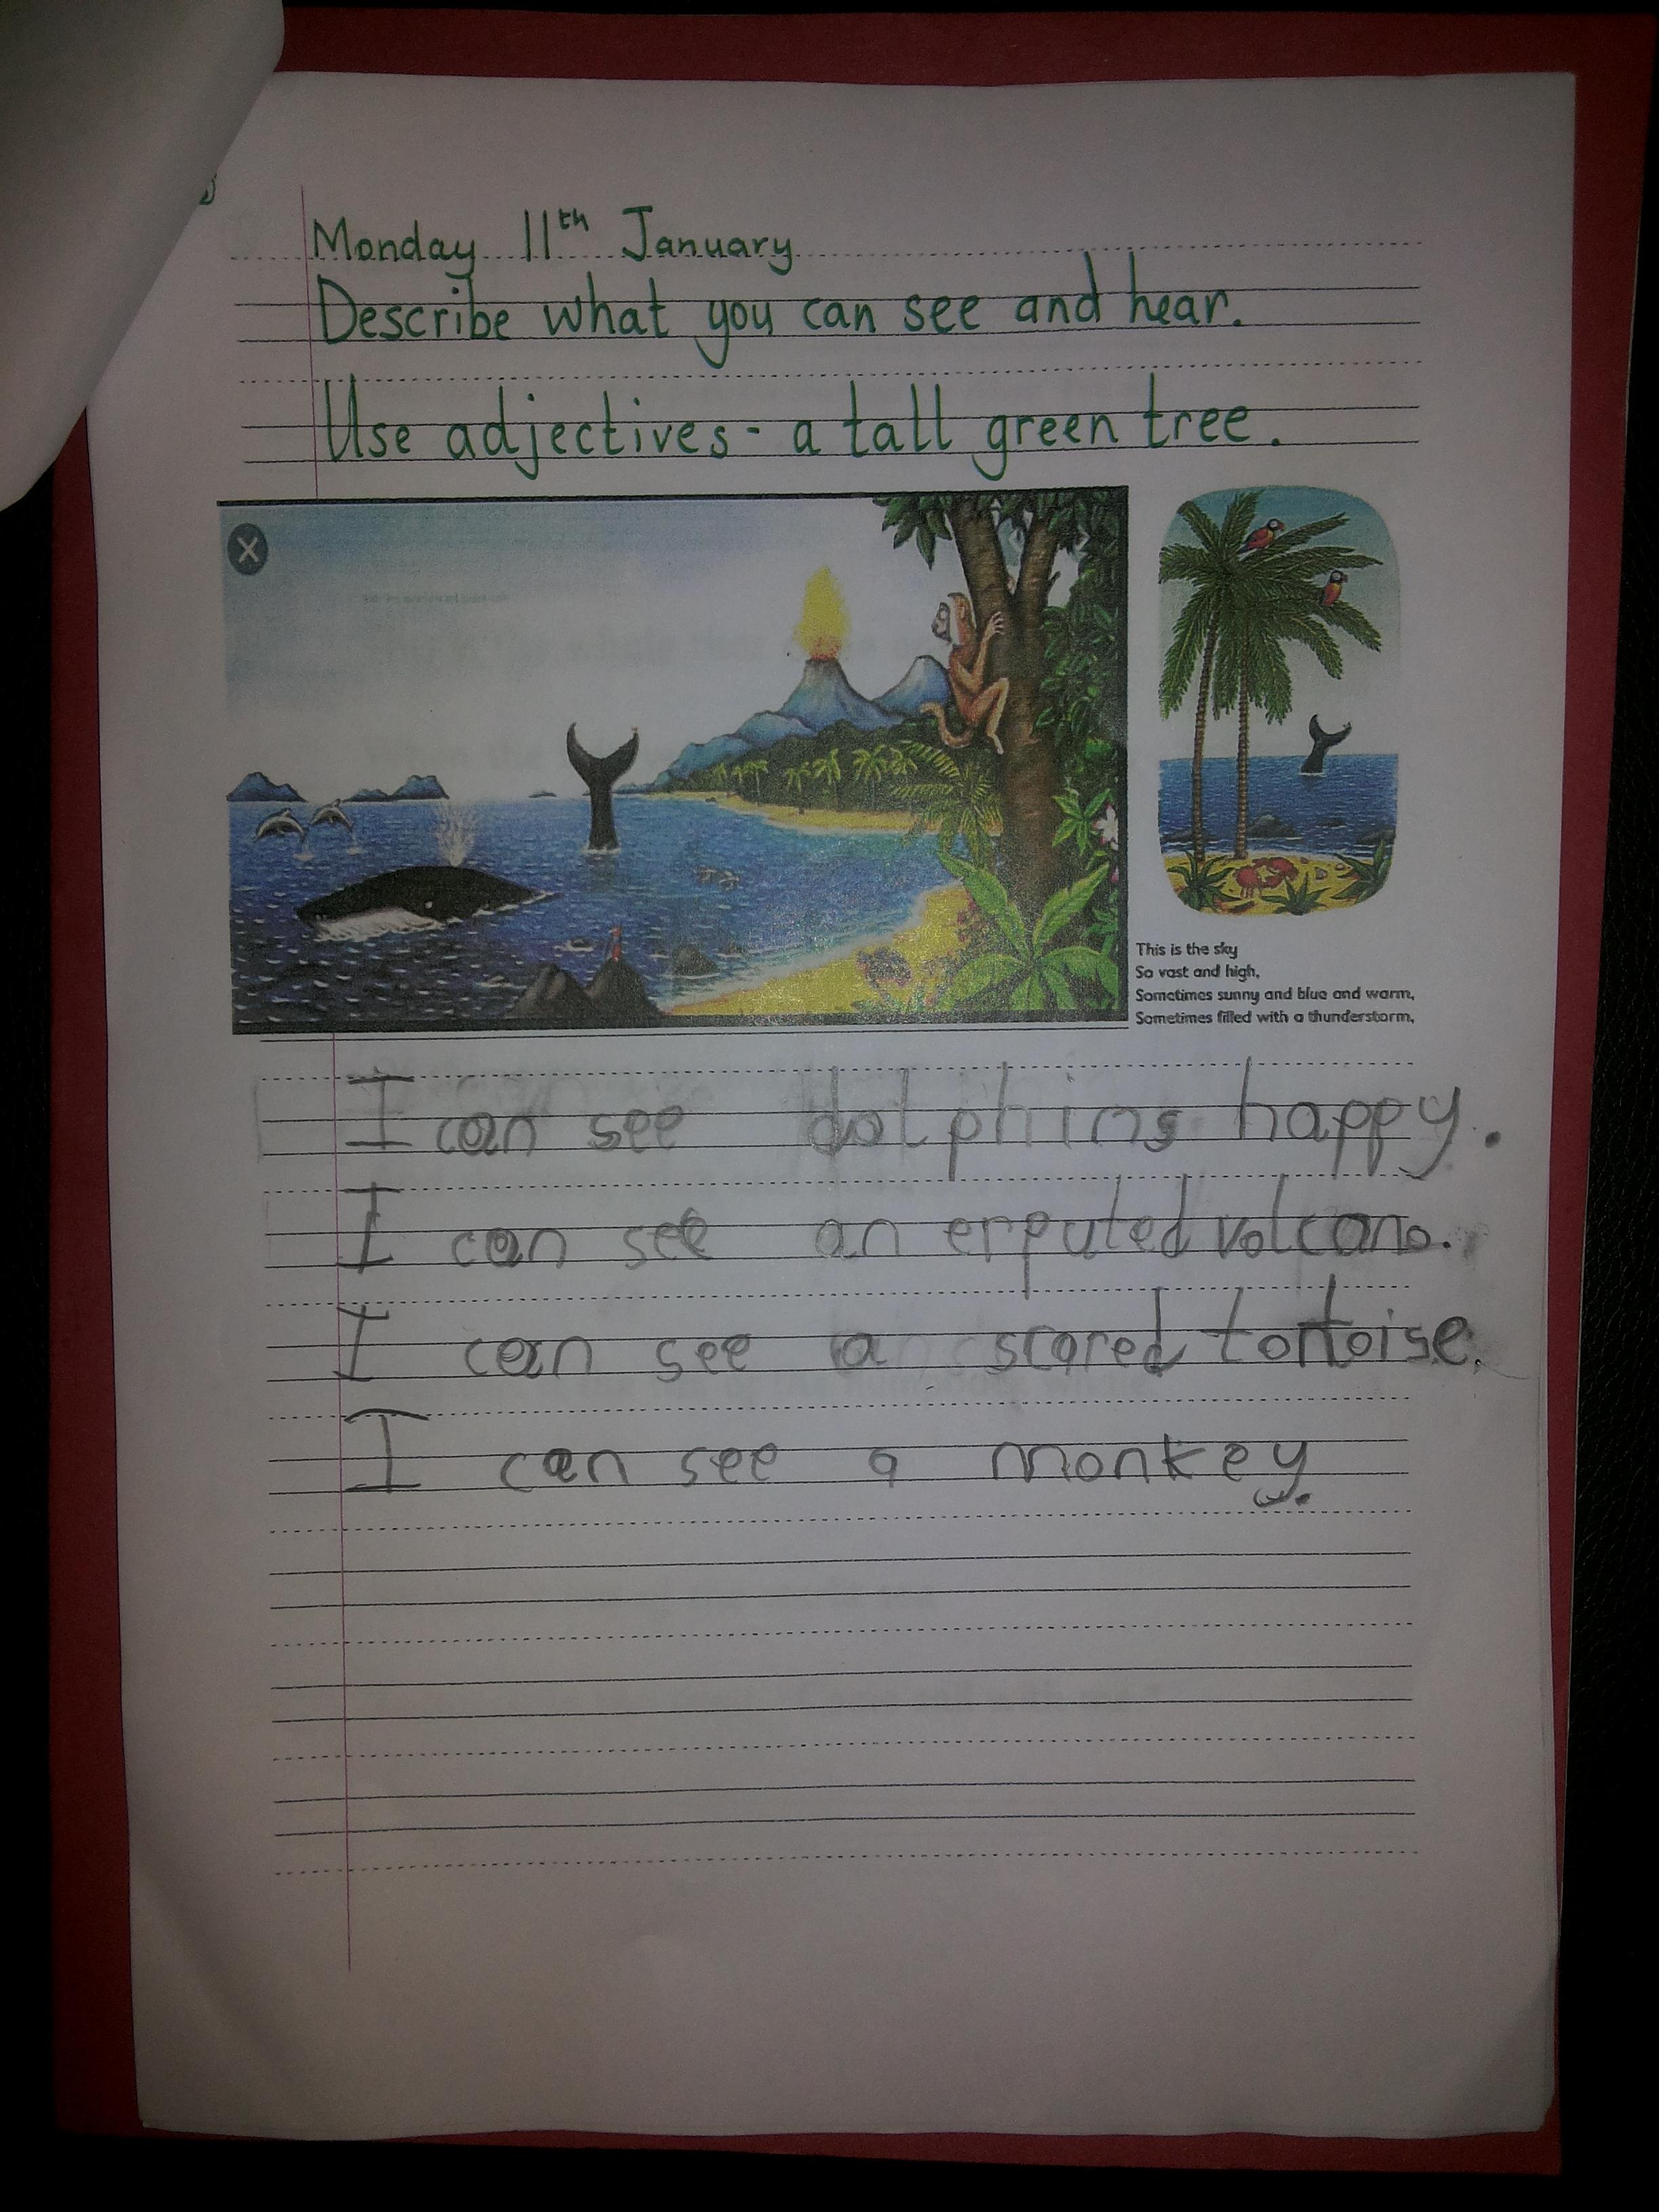 Monday 11th January
Describe what you can see and hear.
Use adjectives - a tall green tree.
X
This is the sky
So vast and high,
Sometimes sunny and blue and warm,
Sometimes filled with a thunderstorm,
I can see dolphins happy.
I can see an erputed volcano.
I can see a scared tortoise.
I can see a monkey.